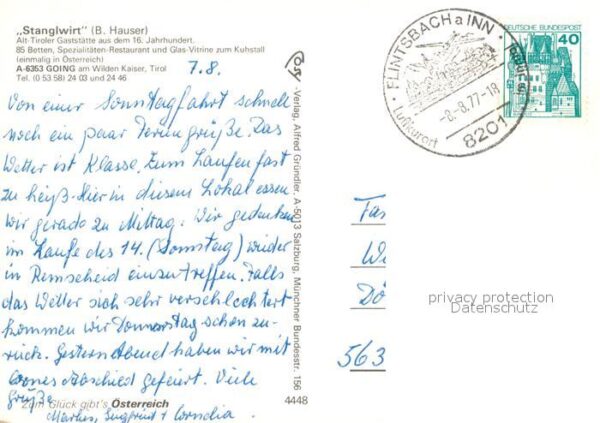 „Stanglwirt" (B. Hauser)
Alt-Tiroler Gaststätte aus dem 16. Jahrhundert.
85 Betten, Spezialitäten-Restaurant und Glas-Vitrine zum Kuhstall
(einmalig in Österreich)
A-6353 GOING am Wilden Kaiser, Tirol
Tel. (0 53 58) 24 03 und 24 46
7.8.
Von einer Sonntagfahrt schnell
noch ein paar Feriengrüße. Das
Wetter ist Klasse. Zum Laufen fast
zu heiß. Hier in diesem Lokal essen
wir gerade zu Mittag. Wir gedenken
im Laufe des 14. (Sonntag) wieder
in Remscheid einzutreffen. Falls
das Wetter sich sehr verschlechtert
kommen wir Donnerstag schon zu-
rück. Gestern Abend haben wir mit
Abschied gefeiert. Viele
Grüße
Zum Glück gibt's Österreich
Siegfried + Cornelia
4448
-Verlag, Alfred Gründler, A-5013 Salzburg, Münchner Bundesstr. 156
FLINTSBACH a INN
-8.8.77-18
Luftkurort
8201
DEUTSCHE BUNDESPOST
40
Fa
We
Dö
563
privacy protection
Datenschutz